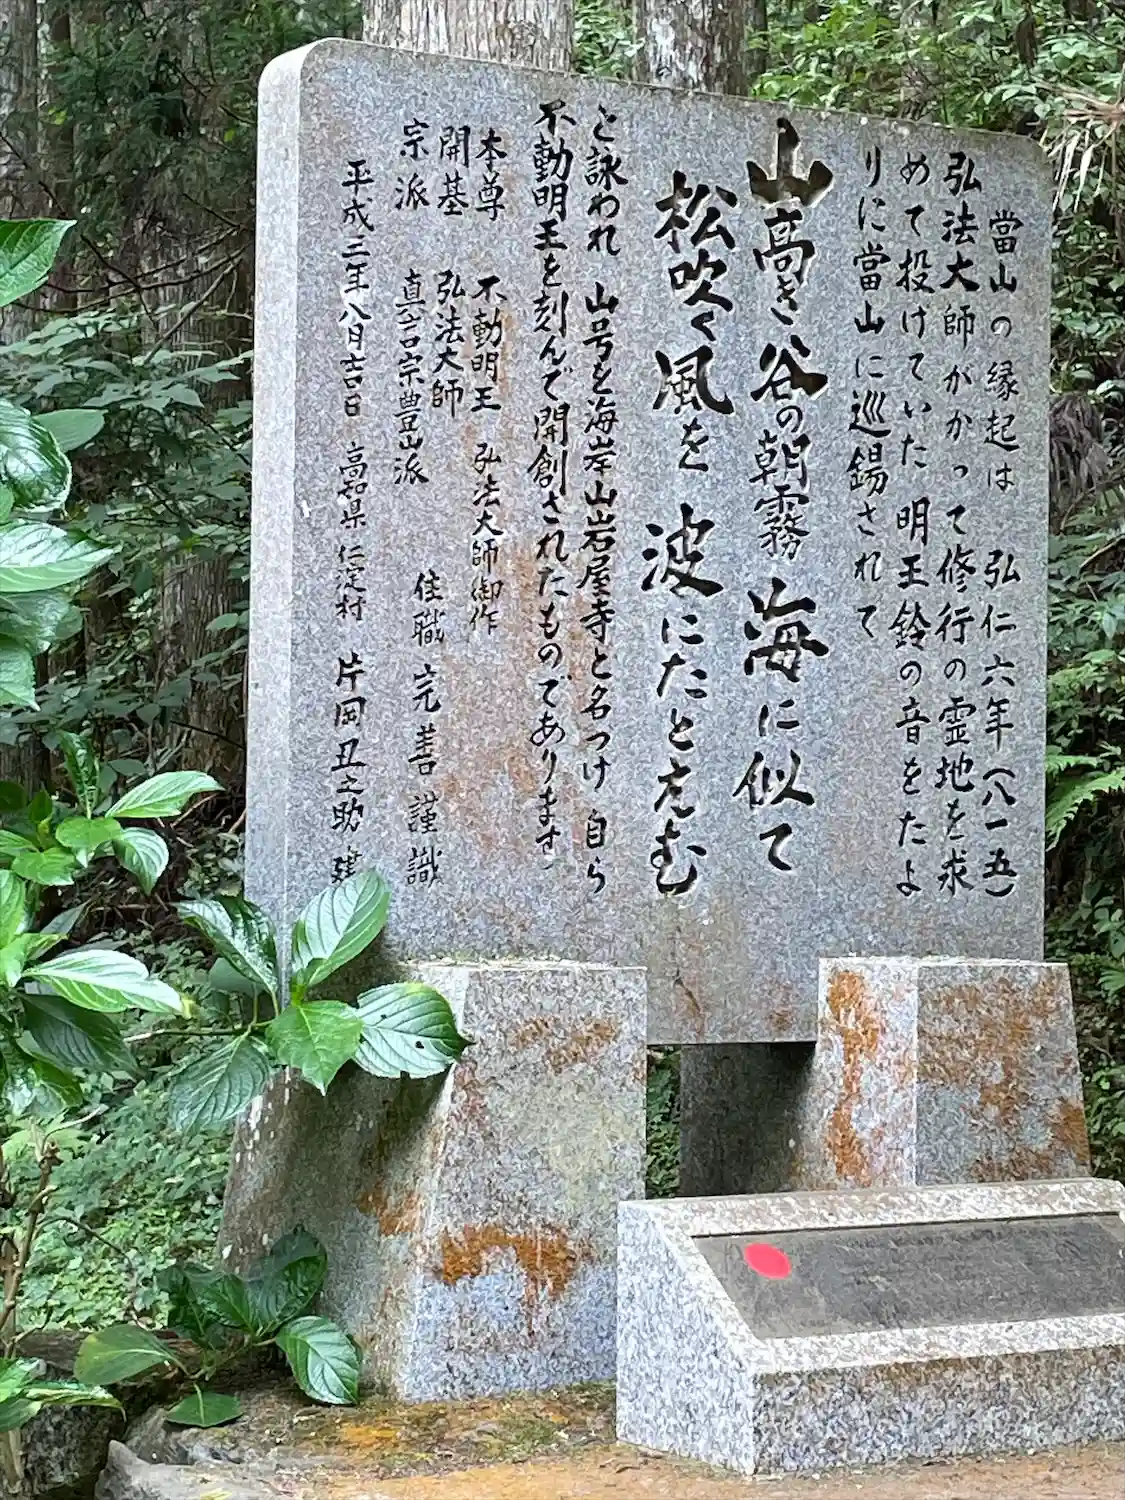 當山の縁起は 弘仁六年(八一五)
弘法大師がかって修行の霊地を求
めて投げていた明王鈴の音をたよ
りに當山に巡錫されて
山高き谷の朝霧海に似て
松吹く風を波にたとえむ
と詠われ 山号を海岸山岩屋寺と名つけ 自ら
不動明王を刻んで開創されたものであります
本尊 不動明王 弘法大師御作
開基 弘法大師
宗派 真言宗豊山派 住職 完善 謹識
平成二年八月吉日 高知県 仁淀村 片岡丑之助 建